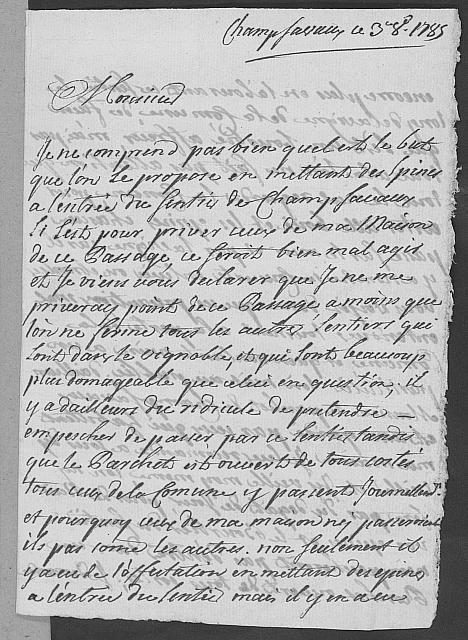 Champsavaux ce 3e 8e. 1785
Monsieur
Je ne comprend pas bien quel est le but
que l'on se propose en mettant des Epines
a l'entrée du sentié de Champsavaux
si s'est pour priver ceux de ma Maison
de ce Passage, ce seroit bien mal agis
et Je viens vous declarer que Je ne me
priveray point de ce Passage a moins que
l'on ne ferme tous les autres sentiers que
sont dans le vignoble, et qui sont beaucoup
plus domageable que celui en question, il
y a dailleurs du ridicule de pretendre
empescher de passer par ce sentié tandis
que le Parchet est ouvert de tous costés
tous ceux de la Comune y passent Journellemt.
et pourquoy ceux de ma maison n'y passeroient
ils pas come les autres. non seulement il
y a eu de l'affectation en mettant des epines
a l'entrée du sentié mais il y en a eu